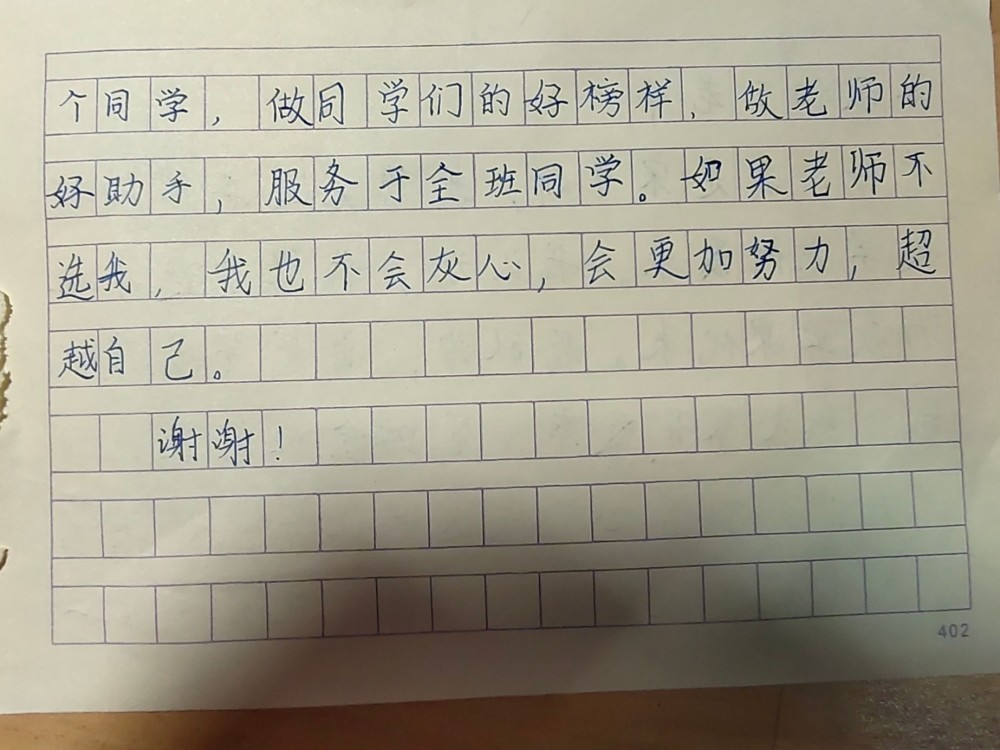 个同学，做同学们的好榜样，做老师的
好助手，服务于全班同学。如果老师不
选我，我也不会灰心，会更加努力，超
越自己。
谢谢！
402